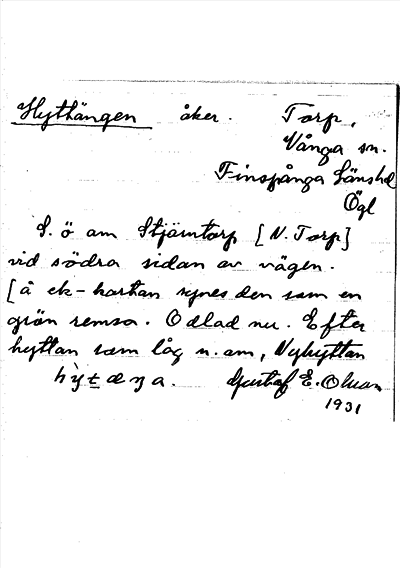 Hythängen åker. Torp,
Vånga sn.
Finspånga Länshd
Ögl
S. ö am Stjärntorp [N. Torp]
vid södra sidan av vägen.
[å ek-kartan synes den som en
grön remsa. Odlad nu. Efter
hyttan som låg n. om, Nyhyttan
hỳtæŋa. Gustaf E. Olsson
1931